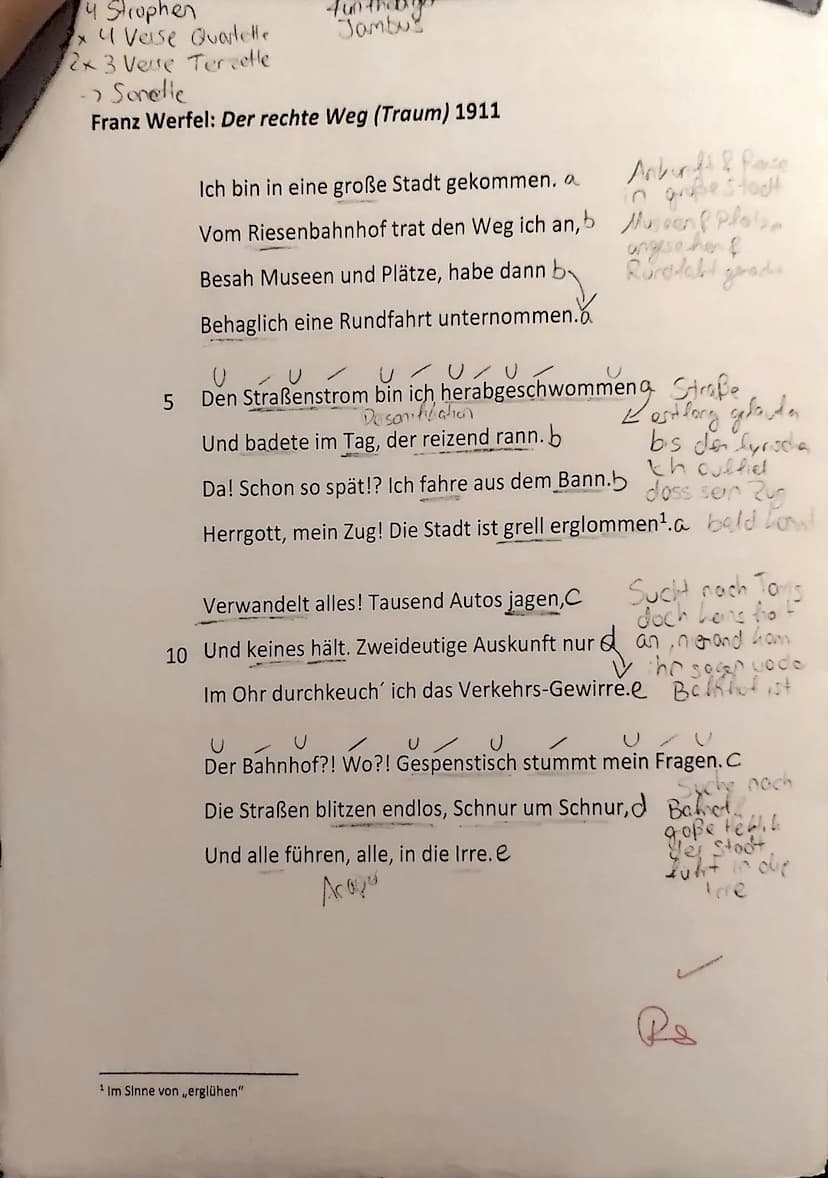 4 Strophen
fünfhebiger
x 4 Verse Quartette
Jambus
2x 3 Verse Terzette
-> Sonette
Franz Werfel: Der rechte Weg (Traum) 1911
Ich bin in eine große Stadt gekommen. a
Vom Riesenbahnhof trat den Weg ich an, b
Besah Museen und Plätze, habe dann b
Behaglich eine Rundfahrt unternommen. a
Ankunft & Reise
in große Stadt
Museen & Plätze
angesehen &
Rundfahrt gemacht
5 Den Straßenstrom bin ich herabgeschwommen a
Und badete im Tag, der reizend rann. b
Da! Schon so spät!? Ich fahre aus dem Bann. b
Herrgott, mein Zug! Die Stadt ist grell erglommen¹. a
Straße
entlang gelaufen
bis den lyrischen
Ich auffiel
dass sein Zug
bald kommt
Verwandelt alles! Tausend Autos jagen, c
10 Und keines hält. Zweideutige Auskunft nur d
Im Ohr durchkeuch´ ich das Verkehrs-Gewirre. e
Sucht nach
doch keins hält
an, niemand kann
ihm sagen wo der
Bahnhof ist
Der Bahnhof?! Wo?! Gespenstisch stummt mein Fragen. c
Die Straßen blitzen endlos, Schnur um Schnur, d
Und alle führen, alle, in die Irre. e
Suche nach
der Stadt
führt in die
Irre
¹ Im Sinne von „erglühen"